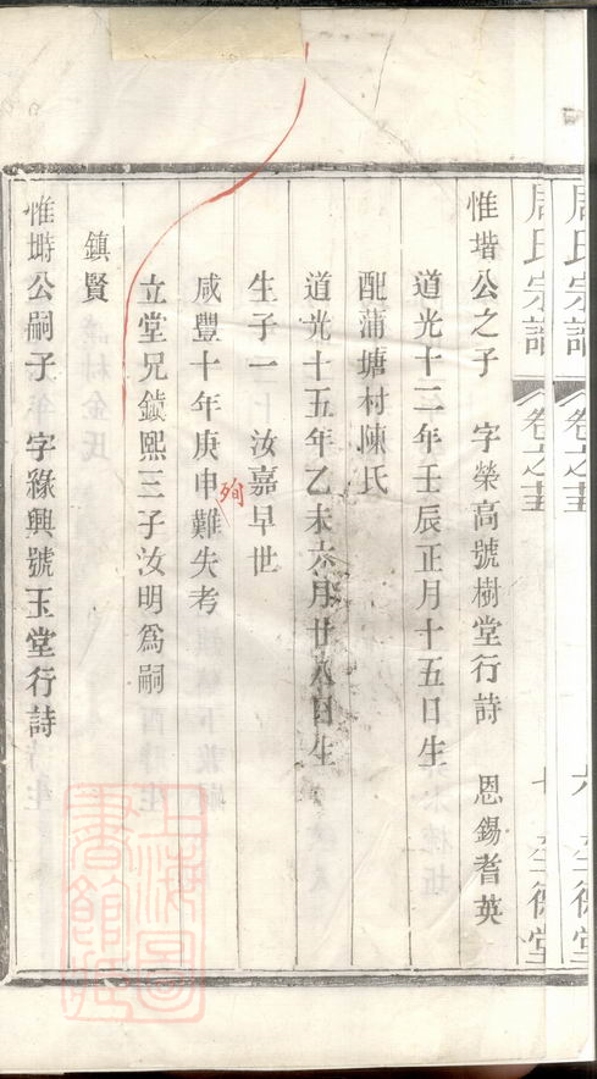 周氏宗譜 卷之 六
周氏宗譜 卷之 七
惟堦公之子 字榮高號樹堂行詩 恩錫耆英
道光十二年壬辰正月十五日生
配蒲塘村陳氏
道光十五年乙未六月廿八日生
生子一 汝嘉早世
咸豐十年庚申殉難失考
立堂兄鎮熙三子汝明為嗣
鎮賢
惟塒公嗣子 字綠興號玉堂行詩
上海圖書館藏